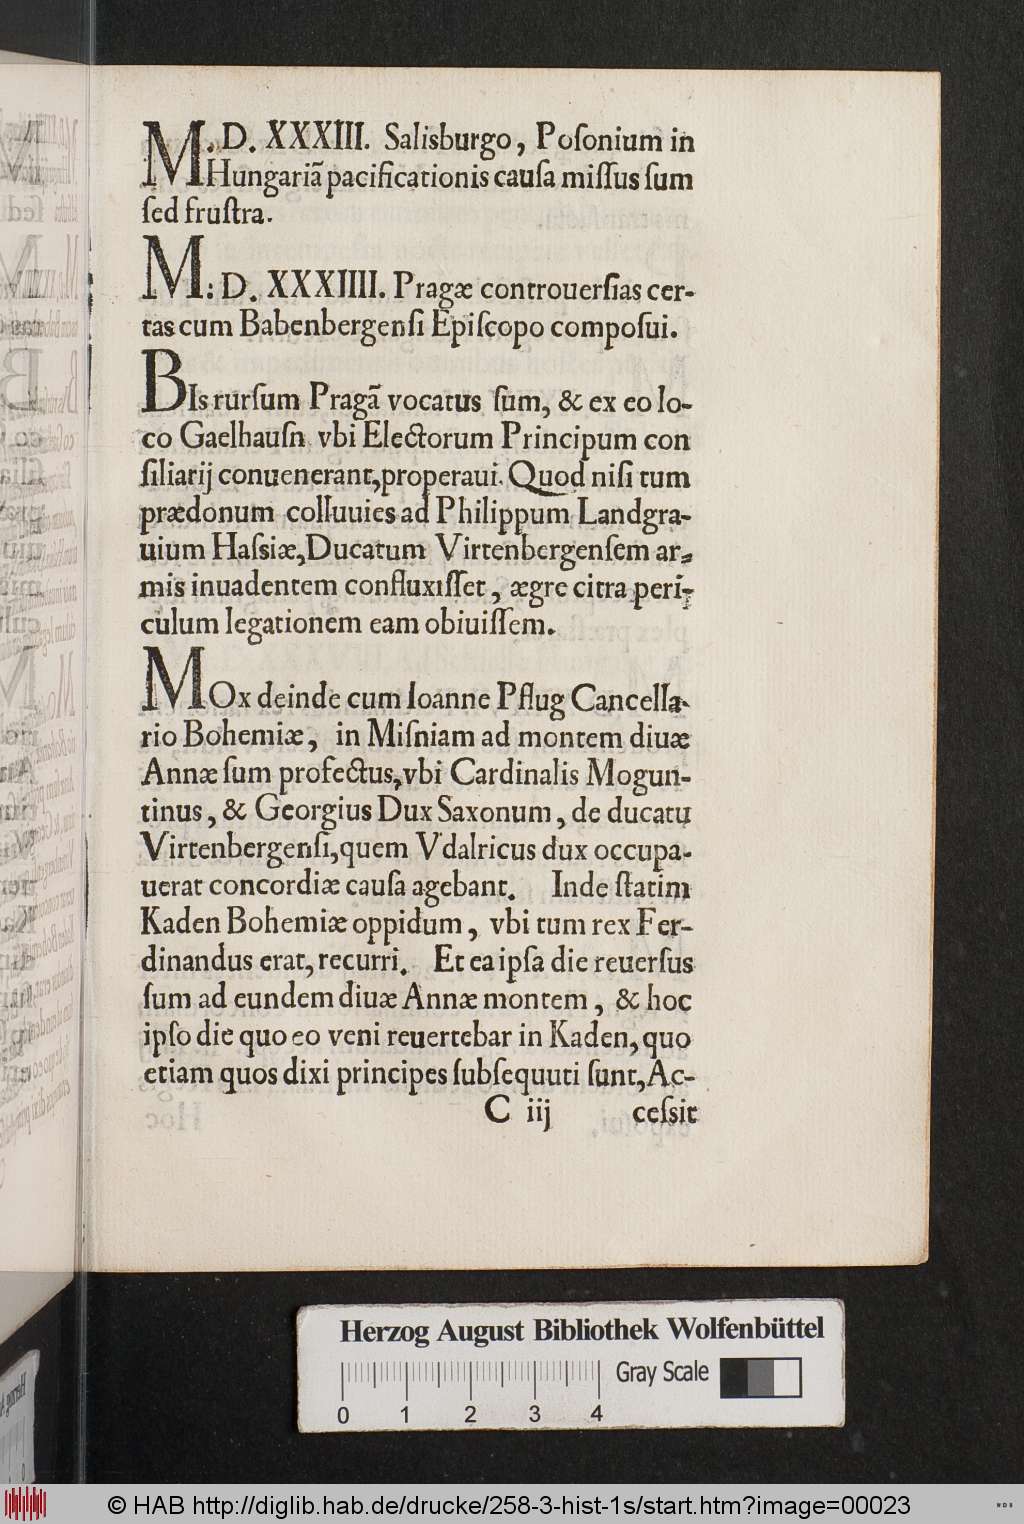 M. D. XXXIII. Salisburgo, Poſonium in
Hungariã pacificationis cauſa miſſus ſum
ſed fruſtra.
M: D. XXXIIII. Pragæ controuerſias cer-
tas cum Babenbergenſi Epiſcopo compoſui.
BIs rurſum Pragã vocatus ſum, & ex eo lo-
co Gaelhauſn vbi Electorum Principum con
ſiliarij conuenerant, properaui. Quod niſi tum
prædonum colluuies ad Philippum Landgra-
uium Haſsiæ, Ducatum Virtenbergenſem ar-
mis inuadentem confluxiſſet, ægre citra peri-
culum legationem eam obiuiſſem.
MOx deinde cum Ioanne Pflug Cancella-
rio Bohemiæ, in Miſniam ad montem diuæ
Annæ ſum profectus, vbi Cardinalis Mogun-
tinus, & Georgius Dux Saxonum, de ducatu
Virtenbergenſi, quem Vdalricus dux occupa-
uerat concordiæ cauſa agebant. Inde ſtatim
Kaden Bohemiæ oppidum, vbi tum rex Fer-
dinandus erat, recurri. Et ea ipſa die reuerſus
ſum ad eundem diuæ Annæ montem, & hoc
ipſo die quo eo veni reuertebar in Kaden, quo
etiam quos dixi principes ſubſequuti ſunt, Ac-
C iij ceſsit
Herzog August Bibliothek Wolfenbüttel
Gray Scale
0 1 2 3 4
© HAB http://diglib.hab.de/drucke/258-3-hist-1s/start.htm?image=00023